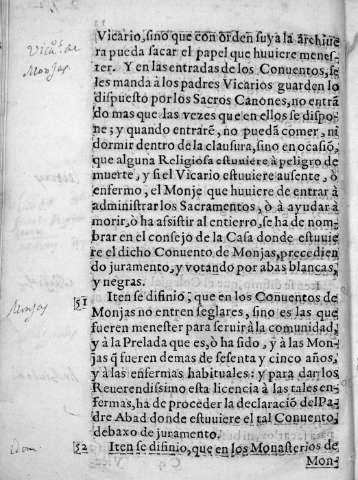 Vicario, sino que con orden suya la archiue
ra pueda sacar el papel que huuiere menes-
ter. Y en las entradas de los Conuentos, se
les manda à los padres Vicarios guarden lo
dispuesto por los Sacros Canones, no entrã
do mas que las vezes que en ellos se dispo-
ne; y quando entrarē, no puedã comer, ni
dormir dentro de la clausura, sino en ocasiõ,
que alguna Religiosa estuuiere à peligro de
muerte, y si el Vicario estuuiere ausente, ò
enfermo, el Monje que huuiere de entrar à
administrar los Sacramentos, ò à ayudar à
morir, ò ha assistir al entierro, se ha de nom-
brar en el consejo de la Casa donde estuuie
re el dicho Conuento de Monjas, precedien
do juramento, y votando por abas blancas,
y negras.
51 Iten se difinio; que en los Conuentos de
Monjas no entren seglares, sino es las que
fueren menester para seruir à la comunidad,
y à la Prelada que es, ò ha sido, y à las Mon-
jas q̃ fueren demas de sesenta y cinco años,
y à las enfermas habituales: y para dar los
Reuerendissimo esta licencia à las tales en-
fermas, ha de proceder la declaraciõ del Pa-
dre Abad donde estuuiere el tal Conuento,
debaxo de juramento.
52 Iten se difinio, que en los Monasterios de
Mon-
Vicarˢ. de
Monjas
Monjas
idem